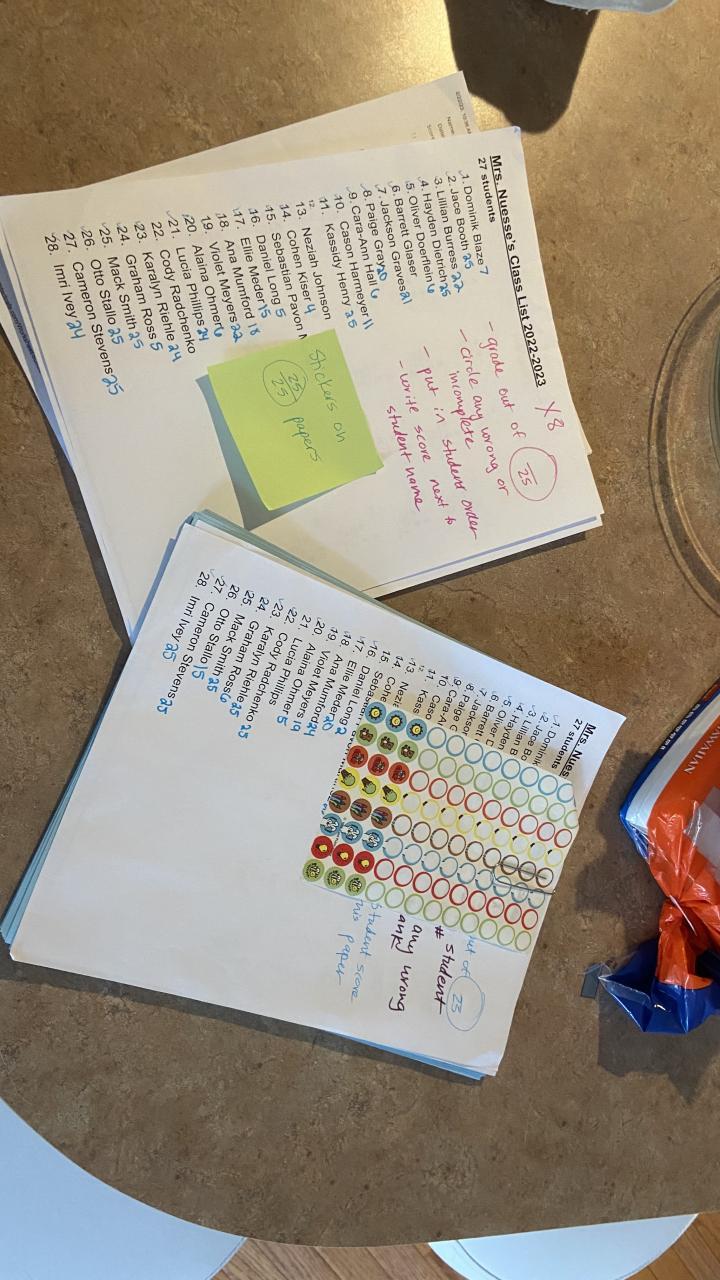 Mrs. Nuesse's Class List 2022-2023
27 students
x8
1. Dominik Blaze 7
2. Jace Booth 25
3. Lillian Burress 22
4. Hayden Dietrich 25
5. Oliver Doerflein 6
6. Barrett Glaser
7. Jackson Graves 21
8. Paige Gray 20
9. Cara-Ann Hall 6
10. Cason Harmeyer 11
11. Kassidy Henry 25
12.
13. Neziah Johnson
14. Cohen Kiser 4
15. Sebastian Pavon
16. Daniel Long 5
17. Ellie Meder 15
18. Ana Mumford 18
19. Violet Meyers 22
20. Alaina Ohmer 6
21. Lucia Phillips 24
22. Cody Radchenko
23. Karalyn Riehle 24
24. Graham Ross 5
25. Mack Smith 25
26. Otto Stallo 25
27. Cameron Stevens 25
28. Imri Ivey 24
- grade out of /25
- circle any wrong or
incomplete
- put in student order
- write score next to
student name
Stickers on
25/25 papers
Mrs. Nues
27 students
1. Dominik
2. Jace Bo
3. Lillian B
4. Hayden
5. Oliver D
6. Barrett
7. Jackson
8. Paige
9. Cara-A
10. Caso
11. Kass
12.
13. Nezie
14. Cohe
15. Sebas
16. Daniel Long 2
17. Ellie Meder 20
18. Ana Mumford 24
19. Violet Meyers 19
20. Alaina Ohmer 5
21. Lucia Phillips
22. Cody Radchenko
23. Karalyn Riehle 25
24. Graham Ross 6
25. Mack Smith 25
26. Otto Stallo 15
27. Cameron Stevens 25
28. Imri Ivey 25
out of 23
# student
any wrong
and
student score
this paper
HAWAIIAN